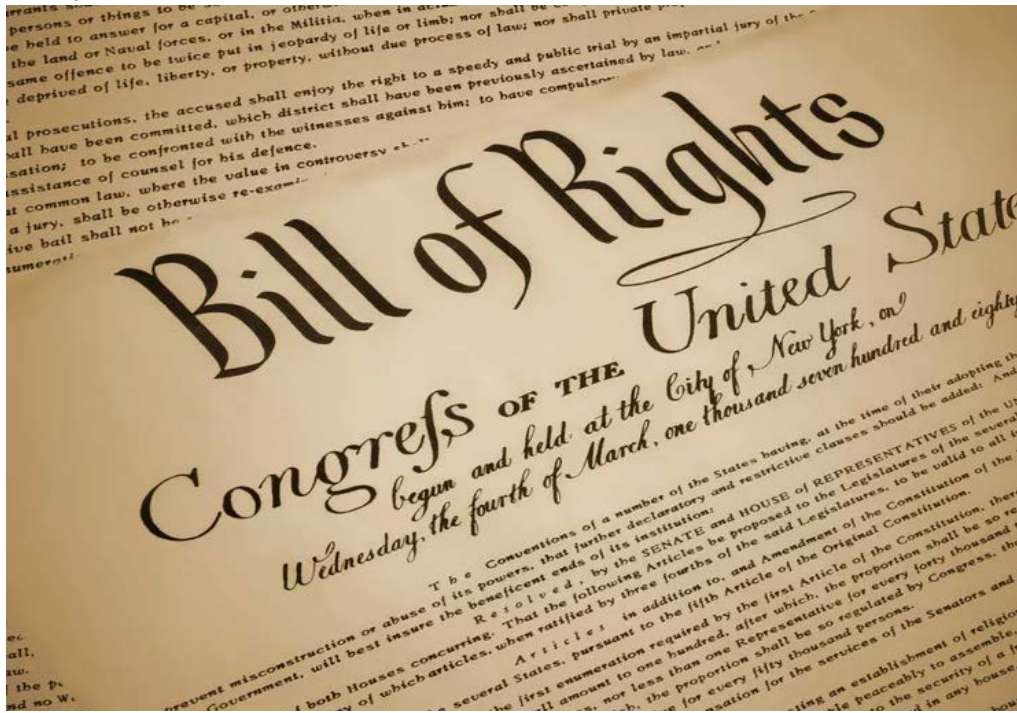 arrants
persons or things to be
be held to answer for a capital, or otherw
the land or Naval forces, or in the Militia, when in ac
same offence to be twice put in jeopardy of life or limb; nor shall be
deprived of life, liberty, or property, without due process of law; nor shall private pro
al prosecutions, the accused shall enjoy the right to a speedy and public trial by an impartial jury of the
all have been committed, which district shall have been previously ascertained by law,
sation; to be confronted with the witnesses against him; to have compulsor
ssistance of counsel for his defence.
t common law, where the value in controversy
a jury, shall be otherwise re-exami
ive bail shall not be
numerati
Bill of Rights
Congreſs OF THE United State
begun and held at the City of New York, on
Wednesday, the fourth of March, one thousand seven hundred and eighty
The Conventions of a number of the States having, at the time of their adopting th
prevent misconstruction or abuse of its powers, that further declaratory and restrictive clauses should be added: And
Government, will best insure the beneficent ends of its institution:
Resolved, by the SENATE and HOUSE of REPRESENTATIVES of the UN
of both Houses concurring. That the following Articles be proposed to the Legislatures of the several
y of which articles, when ratified by three fourths of the said Legislatures, to be valid to all in
Articles in addition to, and Amendment of the Constitution of the
several States, pursuant to the fifth Article of the Original Constitution.
first enumeration required by the first Article of the Constitution, there
all amount to one hundred, after which, the proportion shall be so re
nor less than one Representative for every forty thousand
the proportion shall be so regulated by Congress, tha
ve for every fifty thousand persons.
nsation for the services of the Senators and
ting an establishment of religion
ple peaceably to assemble,
to the security of a f
d in any house